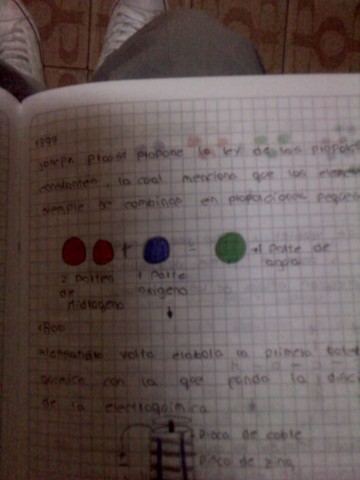 1799
Joseph Proust propone la ley de las propor
constantes, la cual menciona que los elemen
siempre se combinan en proporciones pequeñ
+ = 1 parte de
agua
2 partes
de
Hidrogeno
1 parte
oxigeno
1800
Alessandro Volta elabora la primera
quimica con la que funda la disci
de la electroquimica
Disco de cobre
Disco de zinc